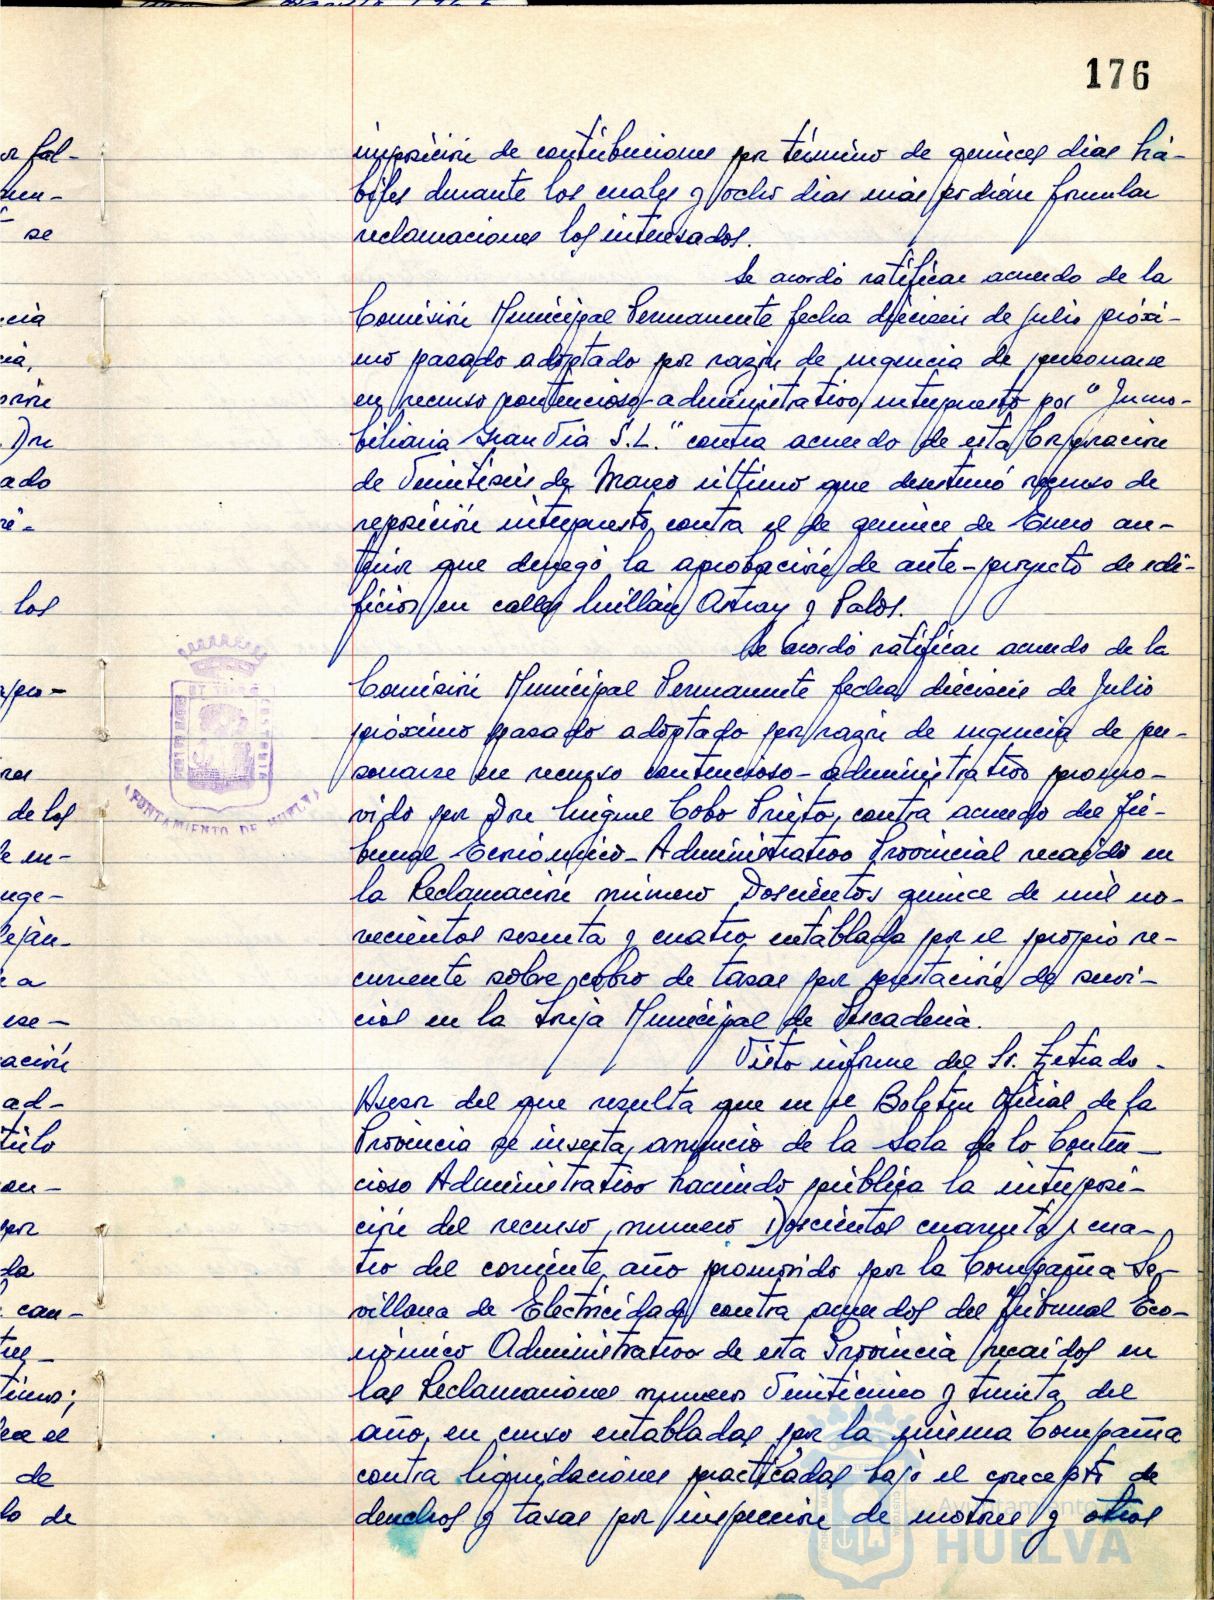 176
imposición de contribuciones por término de quinces dias há-
biles durante los cuales y ocho dias más podrán formular
reclamaciones los interesados.
Se acordó ratificar acuerdo de la
Comisión Municipal Permanente fecha dieciseis de Julio próxi-
mo pasado adoptado por razón de urgencia de personarse
en recurso contencioso-administrativo, interpuesto por "Inmo-
biliaria Gran Via S.L." contra acuerdo de esta Corporación
de Veintiseis de Marzo último que desestimó recurso de
reposición interpuesto contra el de quince de Enero an-
terior que denegó la aprobación de ante-proyecto de edi-
ficios en calles Millán Astray y Palos.
Se acordó ratificar acuerdo de la
Comisión Municipal Permanente fecha dieciseis de Julio
próximo pasado adoptado por razón de urgencia de per-
sonarse en recurso contencioso-administrativo promo-
vido por Don Miguel Cobo Prieto, contra acuerdo del Tri-
bunal Económico-Administrativo Provincial recaído en
la Reclamación número Doscientos quince de mil no-
vecientos sesenta y cuatro entablada por el propio re-
currente sobre cobro de tasas por prestación de servi-
cios en la Lonja Municipal de Pescadería.
Visto informe del Sr. Letrado-
Asesor del que resulta que en el Boletin Oficial de la
Provincia se inserta anuncio de la Sala de lo Conten-
cioso Administrativo haciendo pública la interposi-
ción del recurso número Doscientos cuarenta y cua-
tro del corriente año promovido por la Compañia Se-
villana de Electricidad contra acuerdos del Tribunal Eco-
nómico Administrativo de esta Provincia recaídos en
las Reclamaciones número Veinticinco y treinta del
año en curso entabladas por la misma Compañia
contra liquidaciones practicadas bajo el concepto de
derechos y tasas por inspección de motores y otros
Ayuntamiento
HUELVA